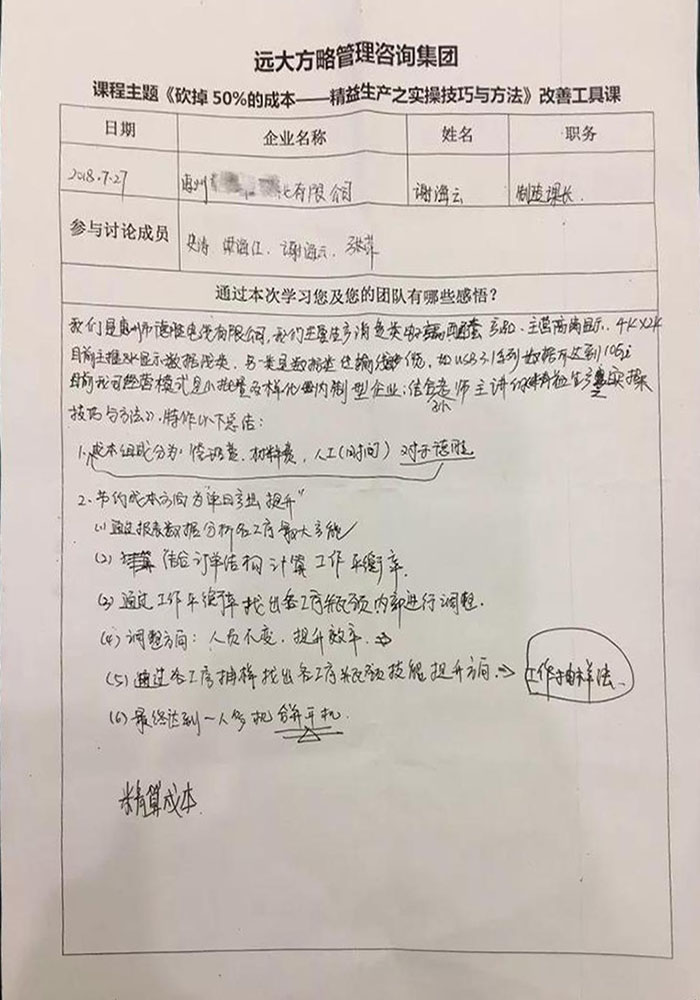 远大方略管理咨询集团
课程主题《砍掉50%的成本——精益生产之实操技巧与方法》改善工具课
日期 企业名称 姓名 职务
2018.7.27 惠州 有限公司 谢海云 制造课长
参与讨论成员 梁海江、谢海云、张萍
通过本次学习您及您的团队有哪些感悟?
我们是惠州市德胜电线有限公司,我们主要生产消费类 主营高清显示,4K×2K
目前主推8K显示数据线类,另一类是数据类传输线缆,如USB3.1系列数据
目前我司经营模式是小批量多样化 内制型企业,结合 老师主讲的《精益生产之实操
技巧与方法》,特作以下总结:
1.成本组成分为: 材料费,人工(时间)对于德胜
2.节约成本方向为"单日产出提升"
(1)通过报表数据分析各工序最大产能
(2)结合订单结构计算工作平衡率.
(3)通过工作平衡率找出各工序瓶颈内部进行调整.
(4)调整方向:人员不变,提升效率.→
(5)通过各工序抽样找出各工序瓶颈技能提升方向.→ 工作抽样法、
(6)最终达到一人多机合并平机.
精算成本